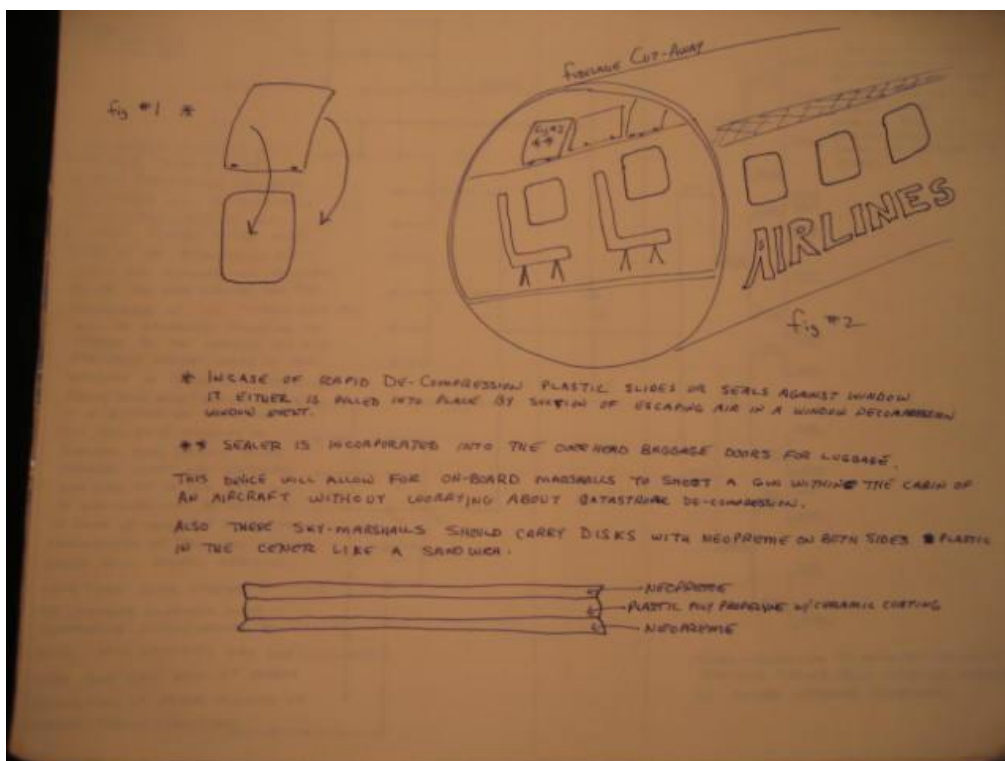 FUSELAGE CUT-AWAY
fig #1 *
fig #2
**
AIRLINES
fig #2
* INCASE OF RAPID DE-COMPRESSION PLASTIC SLIDES OR SEALS AGAINST WINDOW
IT EITHER IS PULLED INTO PLACE BY SUCTION OF ESCAPING AIR IN A WINDOW DECOMPRESSION
WINDOW EVENT.
** SEALER IS INCORPORATED INTO THE OVERHEAD BAGGAGE DOORS FOR LUGGAGE.
THIS DEVICE WILL ALLOW FOR ON-BOARD MARSHALLS TO SHOOT A GUN WITHIN THE CABIN OF
AN AIRCRAFT WITHOUT WORRYING ABOUT DE-COMPRESSION.
ALSO THESE SKY-MARSHALLS SHOULD CARRY DISKS WITH NEOPREME ON BOTH SIDES PLASTIC
IN THE CENTER LIKE A SANDWICH.
NEOPREME
PLASTIC POLY PROPELYNE W/CERAMIC COATING
NEOPREME